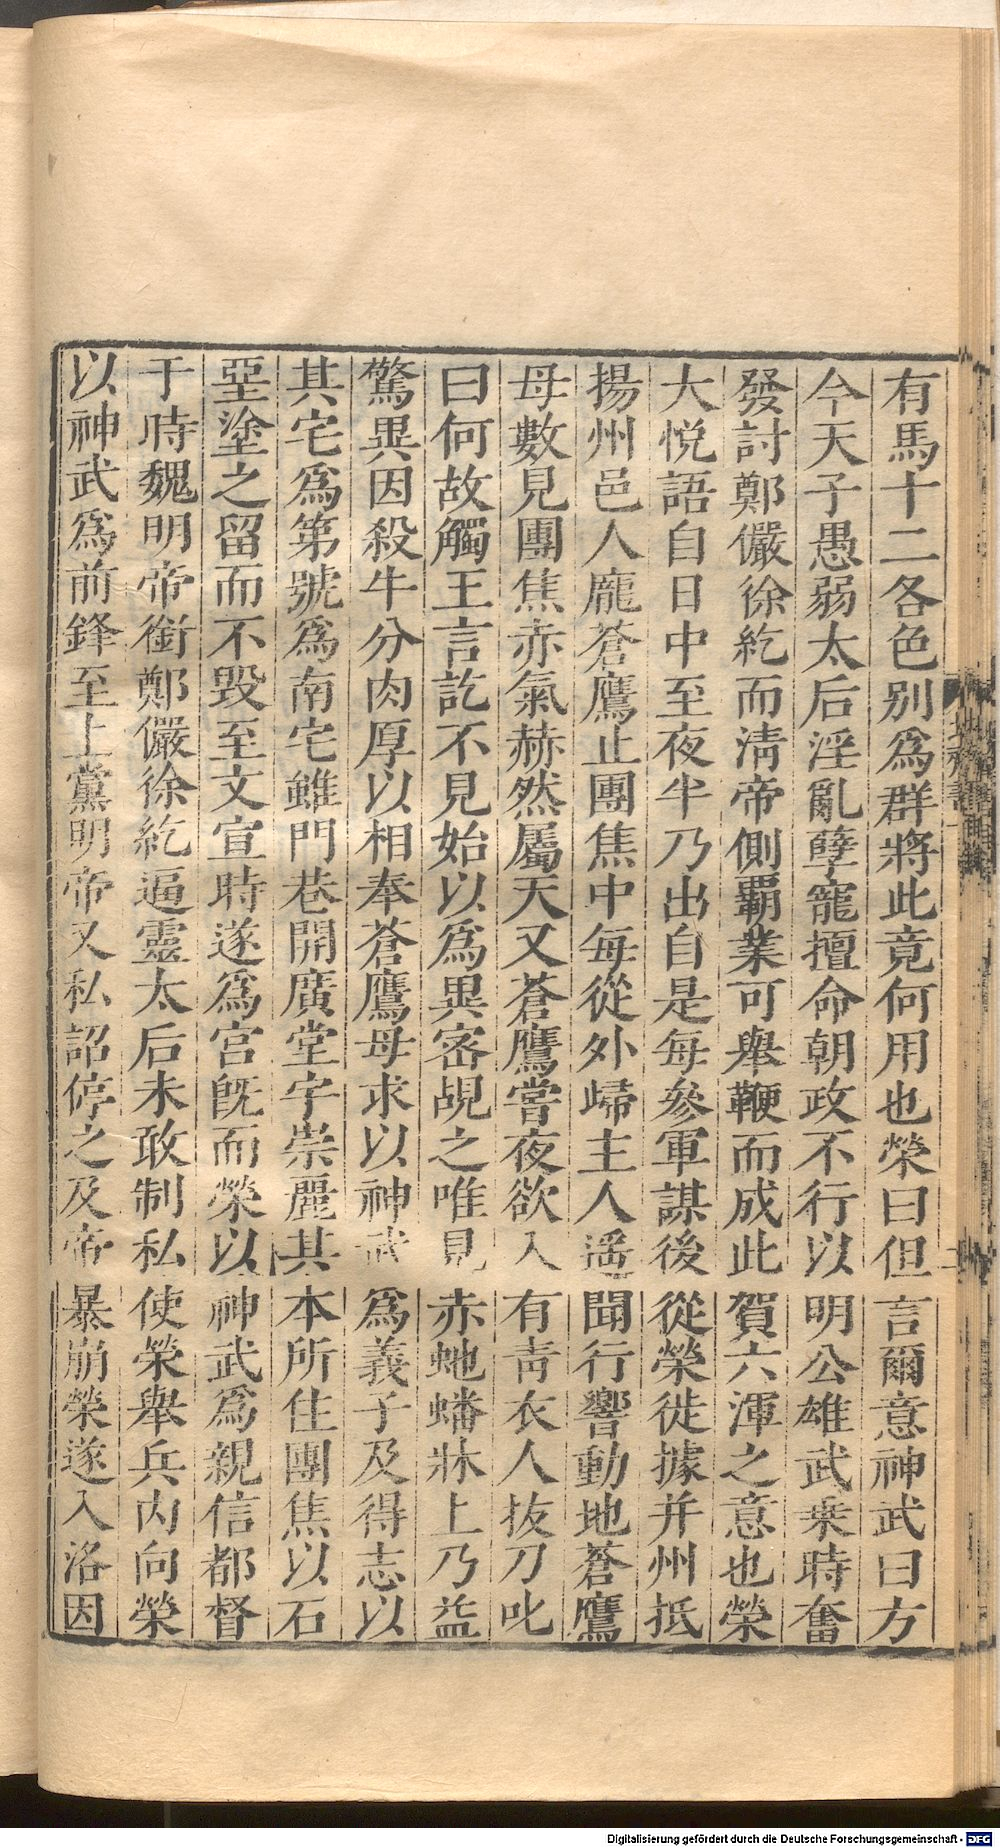 有馬十二各色别爲群將此竟何用也榮曰但言爾意神武曰方
今天子愚弱太后淫亂孽寵擅命朝政不行以明公雄武乗時奮
發討鄭儼徐紇而淸帝側覇業可舉鞭而成此賀六渾之意也榮
大悅語自日中至夜半乃出自是每叅軍謀後從榮徙據并州抵
揚州邑人龐蒼鷹止團焦中每從外歸主人遥聞行響動地蒼鷹
母數見團焦赤氣赫然屬天又蒼鷹嘗夜欲入有靑衣人抜刀叱
曰何故觸王言訖不見始以爲異密覘之唯見赤虵蟠牀上乃益
驚異因殺牛分肉厚以相奉蒼鷹母求以神武爲義子及得志以
其宅爲第號爲南宅雖門巷開廣堂宇崇麗其本所住團焦以石
堊塗之留而不毀至文宣時遂爲宫旣而榮以神武爲親信都督
于時魏明帝銜鄭儼徐紇逼靈太后未敢制私使榮舉兵内向榮
以神武爲前鋒至上黨明帝又私詔停之及帝暴崩榮遂入洛因
Digitalisierung gefördert durch die Deutsche Forschungsgemeinschaft - DFG